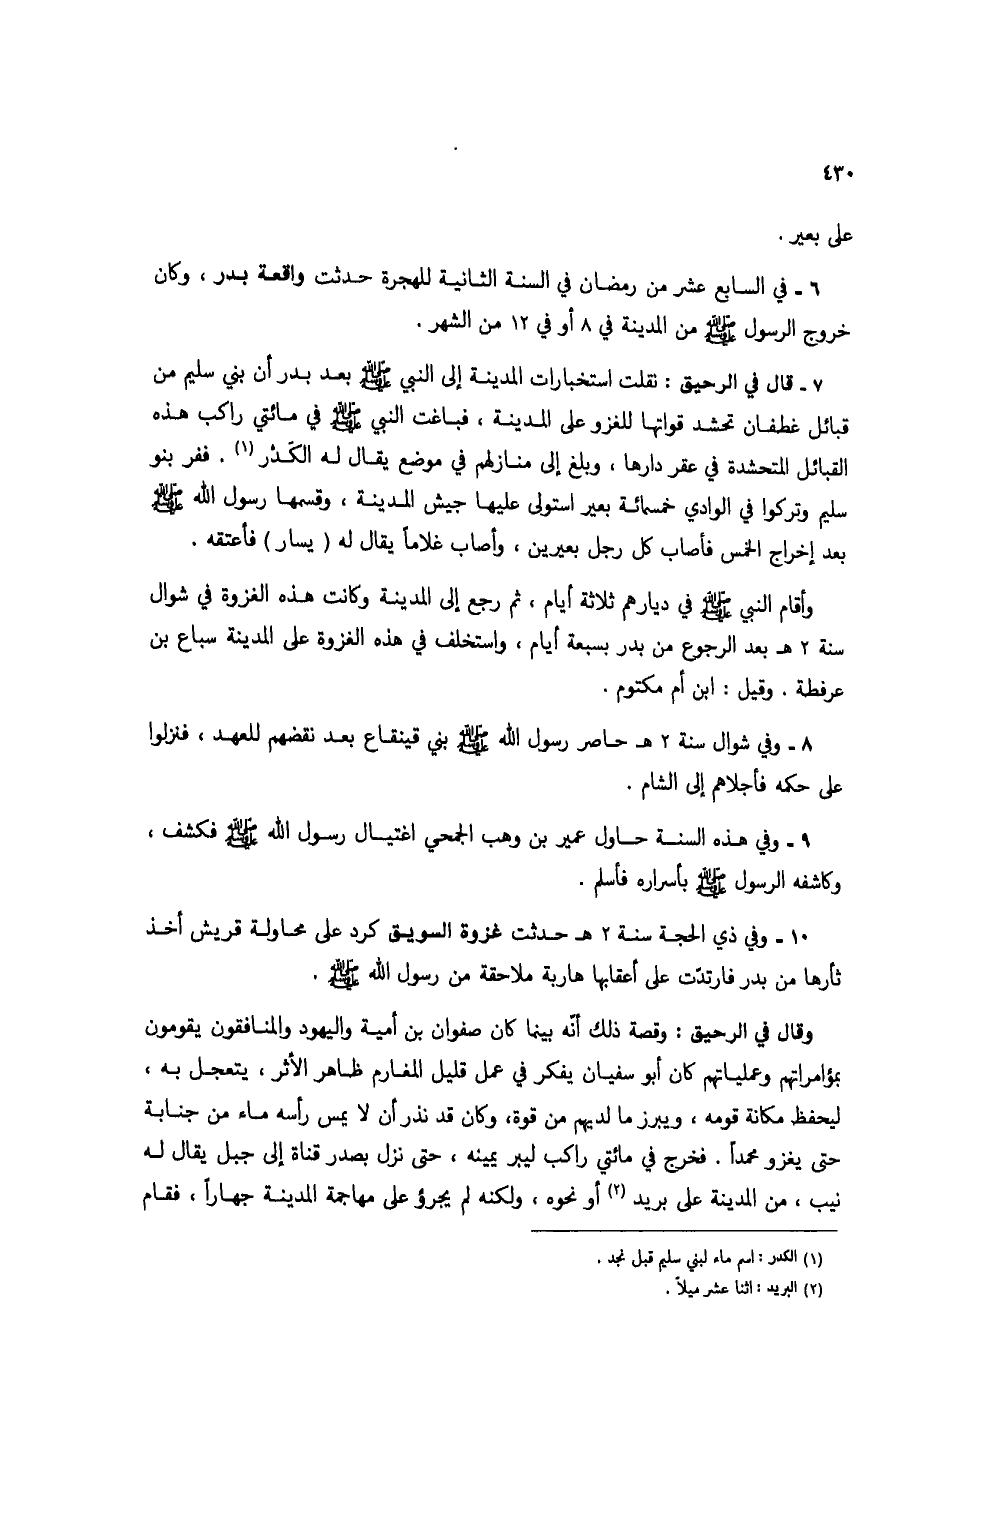 ٤٣٠
على بعير .
٦ ـ في السابع عشر من رمضان في السنة الثانية للهجرة حدثت واقعة بدر ، وكان
خروج الرسول ﷺ من المدينة في ٨ أو في ١٢ من الشهر .
٧ ـ قال في الرحيق : نقلت استخبارات المدينة إلى النبي ﷺ بعد بدر أن بني سليم من
قبائل غطفان تحشد قواتها للغزو على المدينة ، فباغت النبي ﷺ في مائتي راكب هذه
القبائل المتحشدة في عقر دارها ، وبلغ إلى منازلهم في موضع يقال له الكُدْر (١) . ففر بنو
سليم وتركوا في الوادي خمسمائة بعير استولى عليها جيش المدينة ، وقسمها رسول الله ﷺ
بعد إخراج الخمس فأصاب كل رجل بعيرين ، وأصاب غلاماً يقال له ( يسار ) فأعتقه .
وأقام النبي ﷺ في ديارهم ثلاثة أيام ، ثم رجع إلى المدينة وكانت هذه الغزوة في شوال
سنة ٢ هـ بعد الرجوع من بدر بسبعة أيام ، واستخلف في هذه الغزوة على المدينة سباع بن
عرفطة . وقيل : ابن أم مكتوم .
٨ ـ وفي شوال سنة ٢ هـ حاصر رسول الله ﷺ بني قينقاع بعد نقضهم للعهد ، فنزلوا
على حكمه فأجلاهم إلى الشام .
٩ ـ وفي هذه السنة حاول عمير بن وهب الجمحي اغتيال رسول الله ﷺ فكشف ،
وكاشفه الرسول ﷺ بأسراره فأسلم .
١٠ ـ وفي ذي الحجة سنة ٢ هـ حدثت غزوة السويق كرد على محاولة قريش أخذ
ثأرها من بدر فارتدّت على أعقابها هاربة ملاحقة من رسول الله ﷺ .
وقال في الرحيق : وقصة ذلك أنّه بينما كان صفوان بن أمية واليهود والمنافقون يقومون
بمؤامراتهم وعملياتهم كان أبو سفيان يفكر في عمل قليل المغارم ظاهر الأثر ، يتعجل به ،
ليحفظ مكانة قومه ، ويبرز ما لديهم من قوة، وكان قد نذر أن لا يمس رأسه ماء من جنابة
حتى يغزو محمداً . فخرج في مائتي راكب ليبر يمينه ، حتى نزل بصدر قناة إلى جبل يقال له
نيب ، من المدينة على بريد (٢) أو نحوه ، ولكنه لم يجرؤ على مهاجمة المدينة جهاراً ، فقام
(١) الكدر : اسم ماء لبني سليم قبل نجد .
(٢) البريد : اثنا عشر ميلاً .